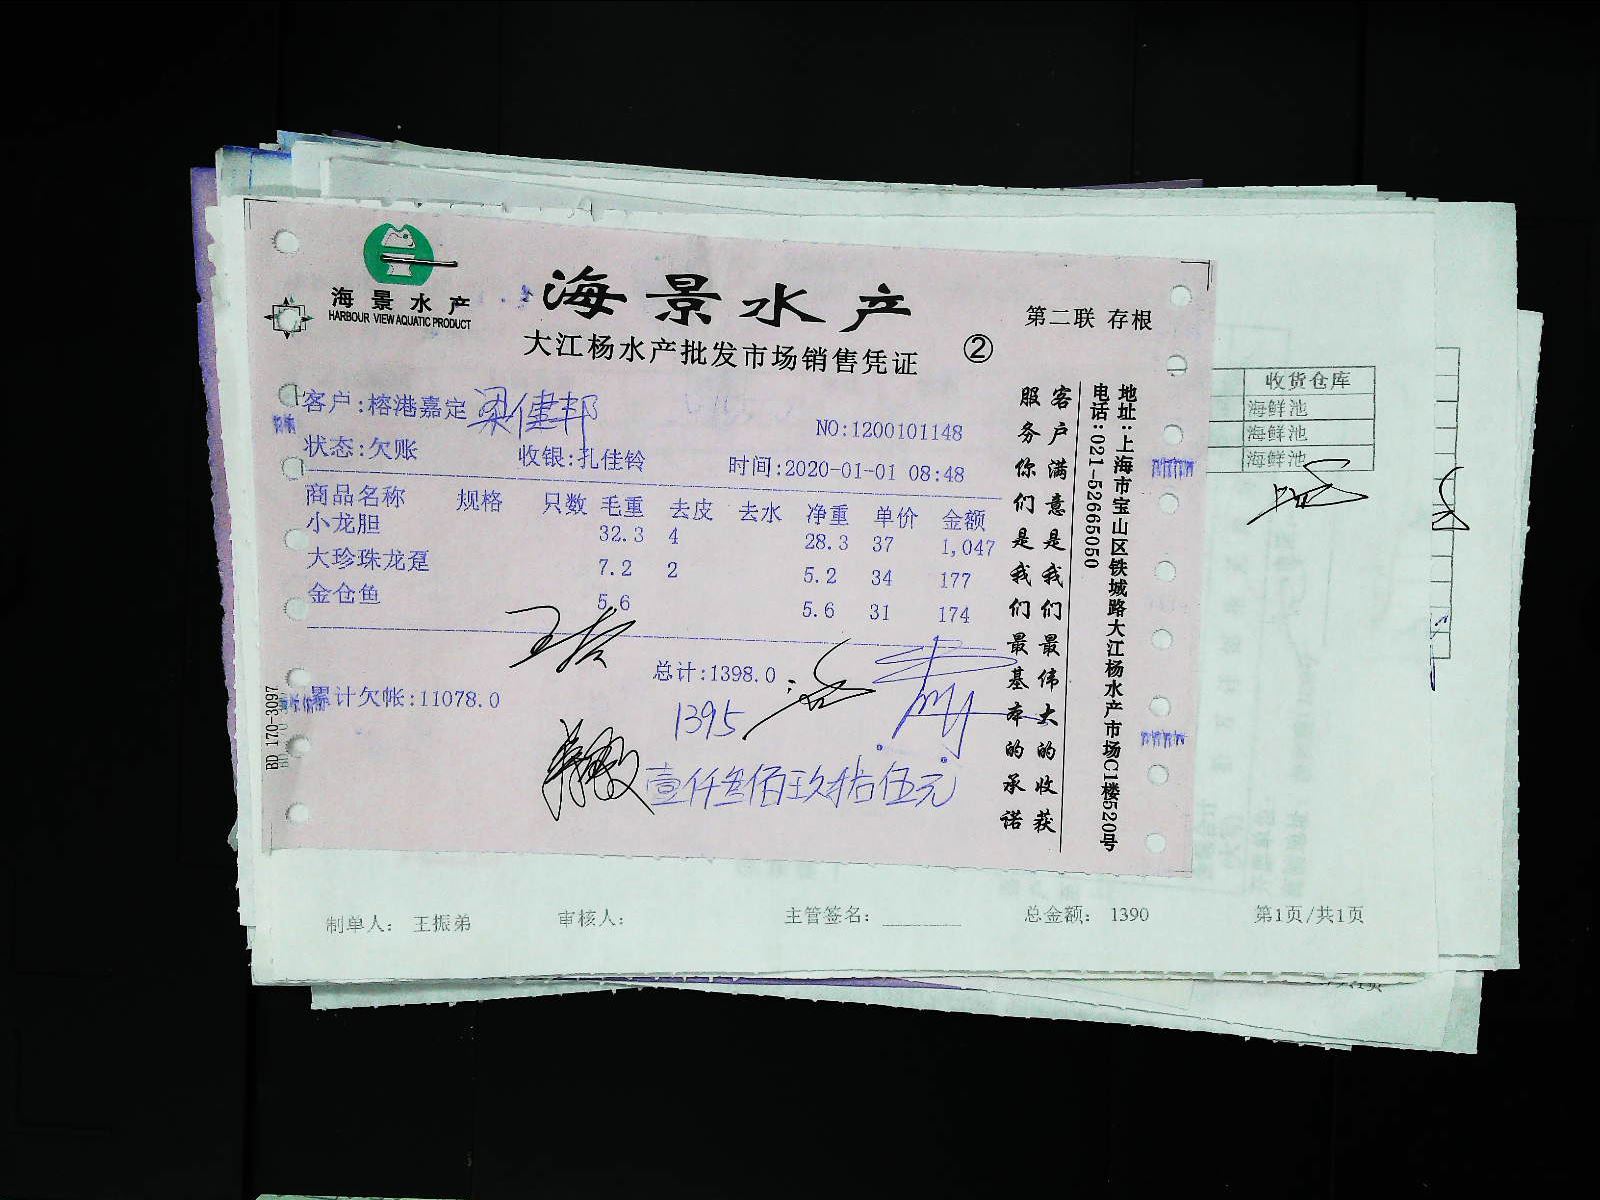 海景水产
HARBOUR VIEW AQUATIC PRODUCT
海景水产
大江杨水产批发市场销售凭证
②
第二联 存根
客户:榕港嘉定 梁健邦
NO:1200101148
状态:欠账 收银:孔佳铃 时间:2020-01-01 08:48
商品名称 规格 只数 毛重 去皮 去水 净重 单价 金额
小龙胆 32.3 4 28.3 37 1,047
大珍珠龙趸 7.2 2 5.2 34 177
金仓鱼 5.6 5.6 31 174
总计:1398.0
累计欠帐:11078.0
1395
壹仟叁佰玖拾伍元
客户满意是我们最伟大的收获
服务你们是我们最基本的承诺
地址:上海市宝山区铁城路大江杨水产市场C1楼520号
电话:021-52665050
BD 170-3097
收货仓库
海鲜池
海鲜池
海鲜池
制单人: 王振弟 审核人: 主管签名: 总金额: 1390 第1页/共1页